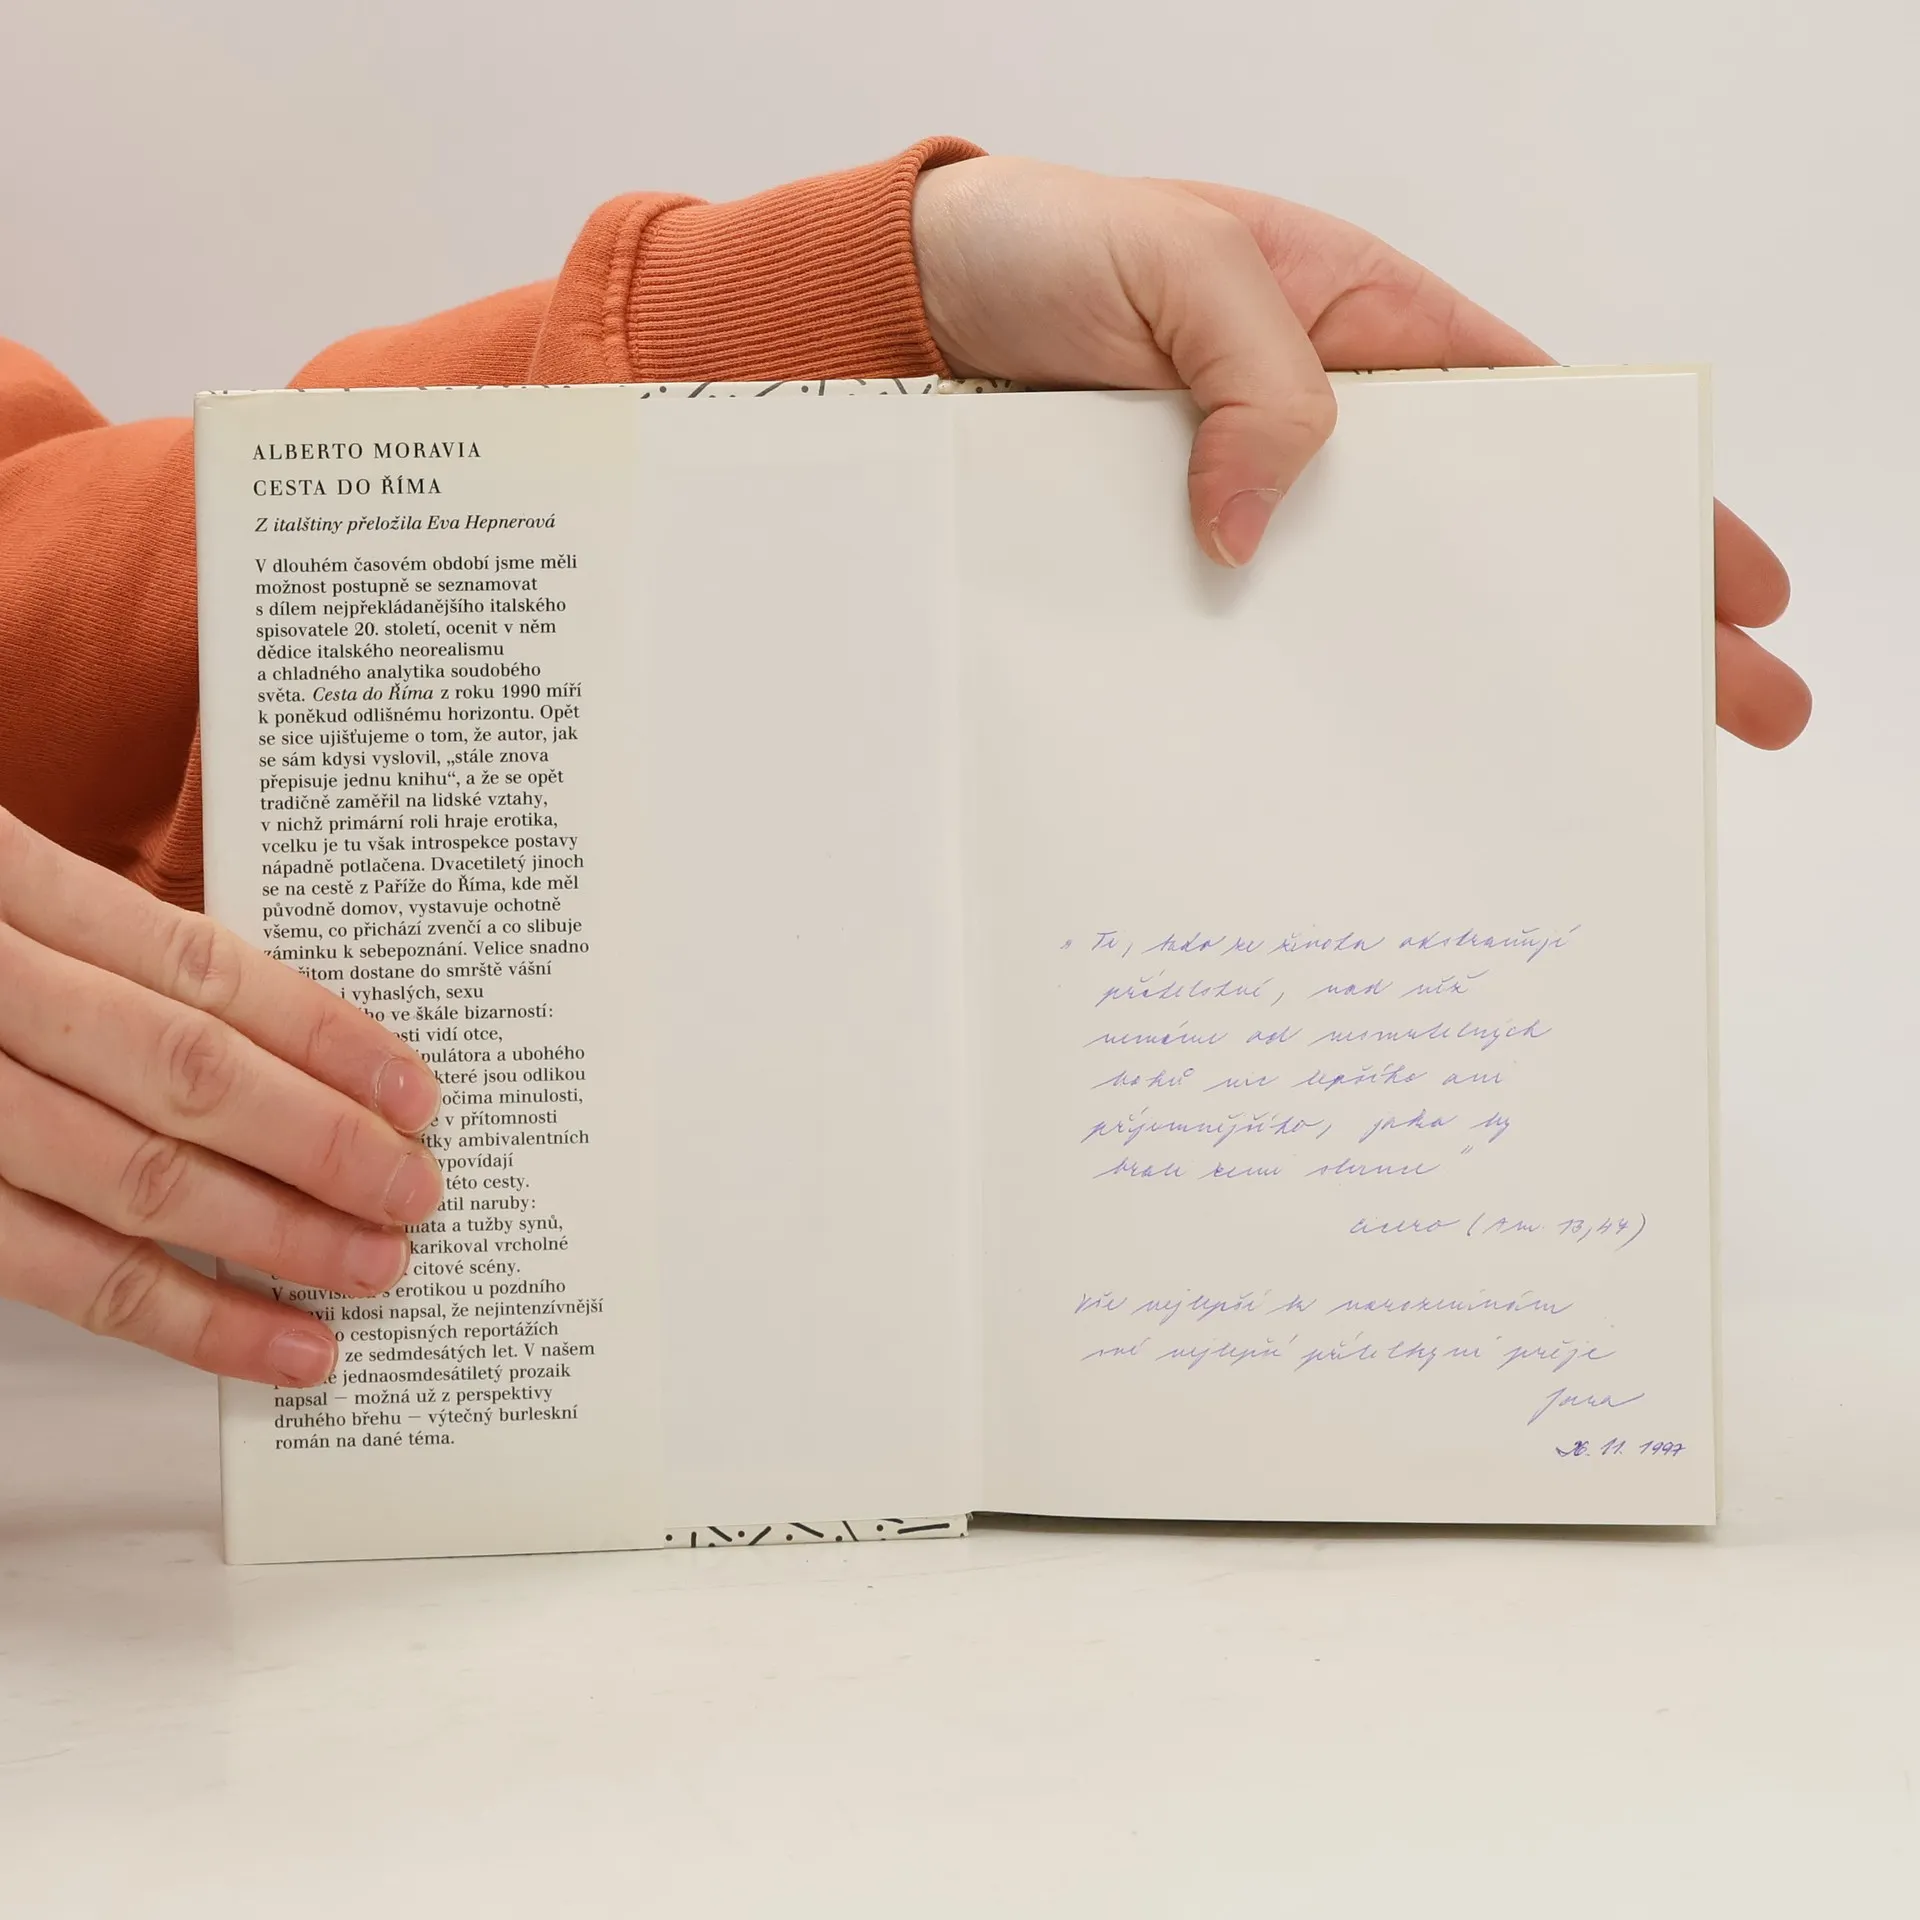 ALBERTO MORAVIA
CESTA DO ŘÍMA
Z italštiny přeložila Eva Hepnerová
V dlouhém časovém období jsme měli
možnost postupně se seznamovat
s dílem nejpřekládanějšího italského
spisovatele 20. století, ocenit v něm
dědice italského neorealismu
a chladného analytika soudobého
světa. Cesta do Říma z roku 1990 míří
k poněkud odlišnému horizontu. Opět
se sice ujišťujeme o tom, že autor, jak
se sám kdysi vyslovil, „stále znova
přepisuje jednu knihu“, a že se opět
tradičně zaměřil na lidské vztahy,
v nichž primární roli hraje erotika,
vcelku je tu však introspekce postavy
nápadně potlačena. Dvacetiletý jinoch
se na cestě z Paříže do Říma, kde měl
původně domov, vystavuje ochotně
všemu, co přichází zvenčí a co slibuje
záminku k sebepoznání. Velice snadno
dostane do smrště vášní
i vyhaslých, sexu
ve škále bizarností:
vidí otce,
a ubohého
které jsou odlikou
očima minulosti,
v přítomnosti
ambivalentních
této cesty.
naruby:
a tužby synů,
karikoval vrcholné
citové scény.
V s erotikou u pozdního
kdosi napsal, že nejintenzívnější
o cestopisných reportážích
ze sedmdesátých let. V našem
jednaosmdesátiletý prozaik
napsal — možná už z perspektivy
druhého břehu — výtečný burleskní
román na dané téma.
„Ti, kdo ze života odstraňují
přátelství, nad něž
nemáme od nesmrtelných
bohů nic lepšího ani
příjemnějšího, jako by
brali zemi slunce“
Cicero (Am. 13,47)
Vše nejlepší k narozeninám
své nejlepší přítelkyni přeje
Jana
26. 11. 1997